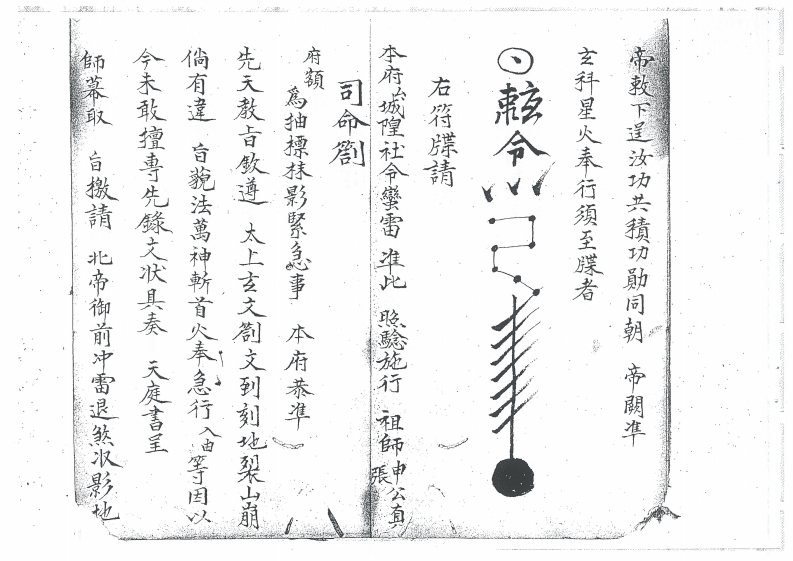 帝敕下逞汝功共積功勛同朝　帝闕准
玄科星火奉行須至牒者
令
右符牒請
本府城隍社令蠻雷　准此　照驗施行　祖師申公真
張
司命劄
府額
為抽摽抹影緊急事　本府恭准
先天教旨欽遵　太上玄文劄文到刻地裂山崩
倘有違　旨藐法萬神斬首火奉急行入由等因以
今未敢擅專先錄文狀具奏　天庭書呈
師幕取　旨檄請　北帝御前冲雷退煞収影地